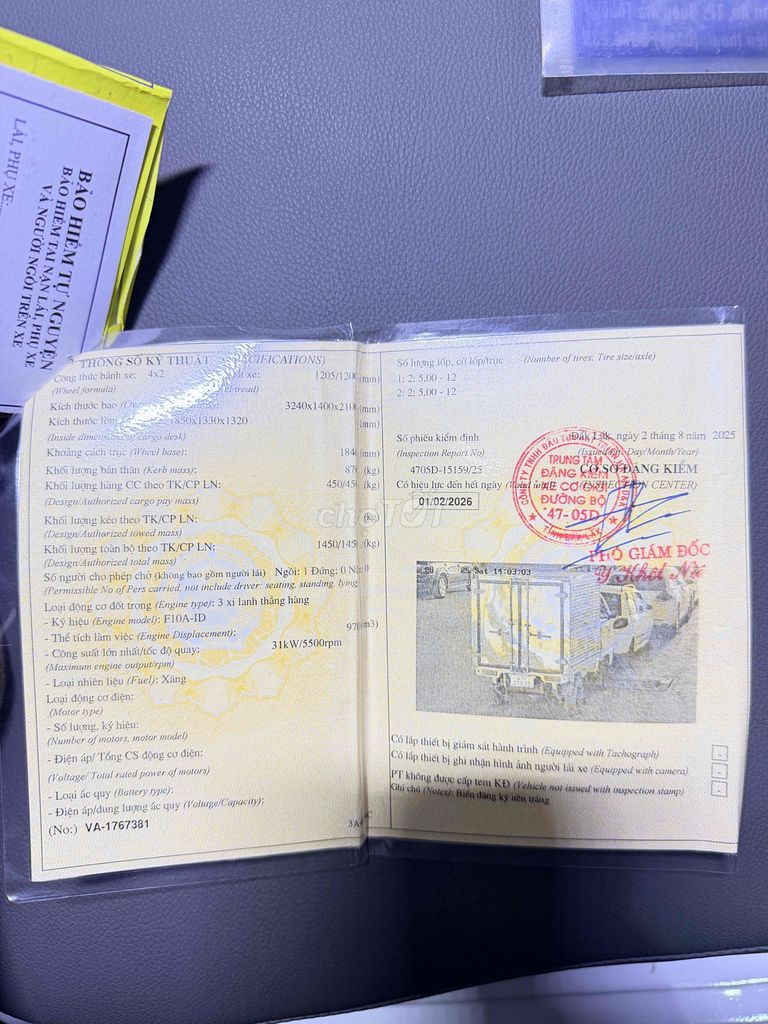 BẢO HIỂM TỰ NGUYỆN
BẢO HIỂM TAI NẠN LÁI, PHỤ XE
VÀ NGƯỜI NGỒI TRÊN XE
LÁI, PHỤ XE:
THÔNG SỐ KỸ THUẬT
Công thức bánh xe: 4x2 1205/1200 (mm)
(Wheel formula)
Kích thước bao 3240x1400x2100 (mm)
Kích thước 1850x1330x1320 (mm)
(Inside dimensions of cargo desk)
Khoảng cách trục (Wheel base): (mm)
Khối lượng bản thân (Kerb mass): (kg)
Khối lượng hàng CC theo TK/CP LN: 450/450 (kg)
(Design/Authorized cargo pay mass)
Khối lượng kéo theo TK/CP LN: (kg)
(Design/Authorized towed mass)
Khối lượng toàn bộ theo TK/CP LN: 1450/1450 (kg)
(Design/Authorized total mass)
Số người cho phép chở (không bao gồm người lái) Ngồi: 1 Đứng: 0
(Permissible No of Pers carried, not include driver: seating, standing, lying
Loại động cơ đốt trong (Engine type): 3 xi lanh thẳng hàng
- Ký hiệu (Engine model): F10A-ID
- Thể tích làm việc (Engine Displacement):
- Công suất lớn nhất/tốc độ quay: 31kW/5500rpm
(Maximum engine output/rpm)
- Loại nhiên liệu (Fuel): Xăng
Loại động cơ điện:
(Motor type)
- Số lượng, ký hiệu:
(Number of motors, motor model)
- Điện áp/ Tổng CS động cơ điện:
(Voltage/ Total rated power of motors)
- Loại ắc quy (Battery type):
- Điện áp/dung lượng ắc quy (Voltage/Capacity):
(No:) VA-1767381
Số lượng lốp, cỡ lốp/trục (Number of tires; Tire size/axle)
1; 2; 5.00 - 12
2; 2; 5.00 - 12
Số phiếu kiểm định
(Inspection Report No)
4705D-15159/25
Có hiệu lực đến hết ngày
01/02/2026
Đắk Lắk, ngày 2 tháng 8 năm 2025
(Issued on: Day/Month/Year)
CƠ SỞ ĐĂNG KIỂM
(INSPECTION CENTER)
TRUNG TÂM
ĐĂNG KIỂM
XE CƠ GIỚI
ĐƯỜNG BỘ
47-05D
PHÓ GIÁM ĐỐC
Sat 14:03:03
Có lắp thiết bị giám sát hành trình (Equipped with Tachograph)
Có lắp thiết bị ghi nhận hình ảnh người lái xe (Equipped with camera)
PT không được cấp tem KĐ (Vehicle not issued with inspection stamp)
Ghi chú (Notes): Biển đăng ký nền trắng
choTỐT